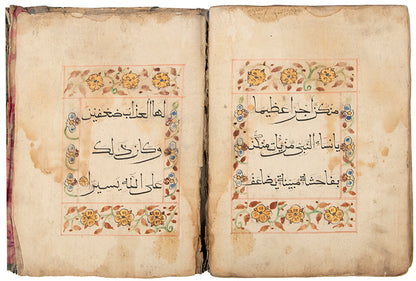 منكن اجرا عظيما
يانساء النبي من يات منكن
بفاحشة مبينة يضاعف
لها العذاب ضعفين
وكان ذلك
على الله يسيرا